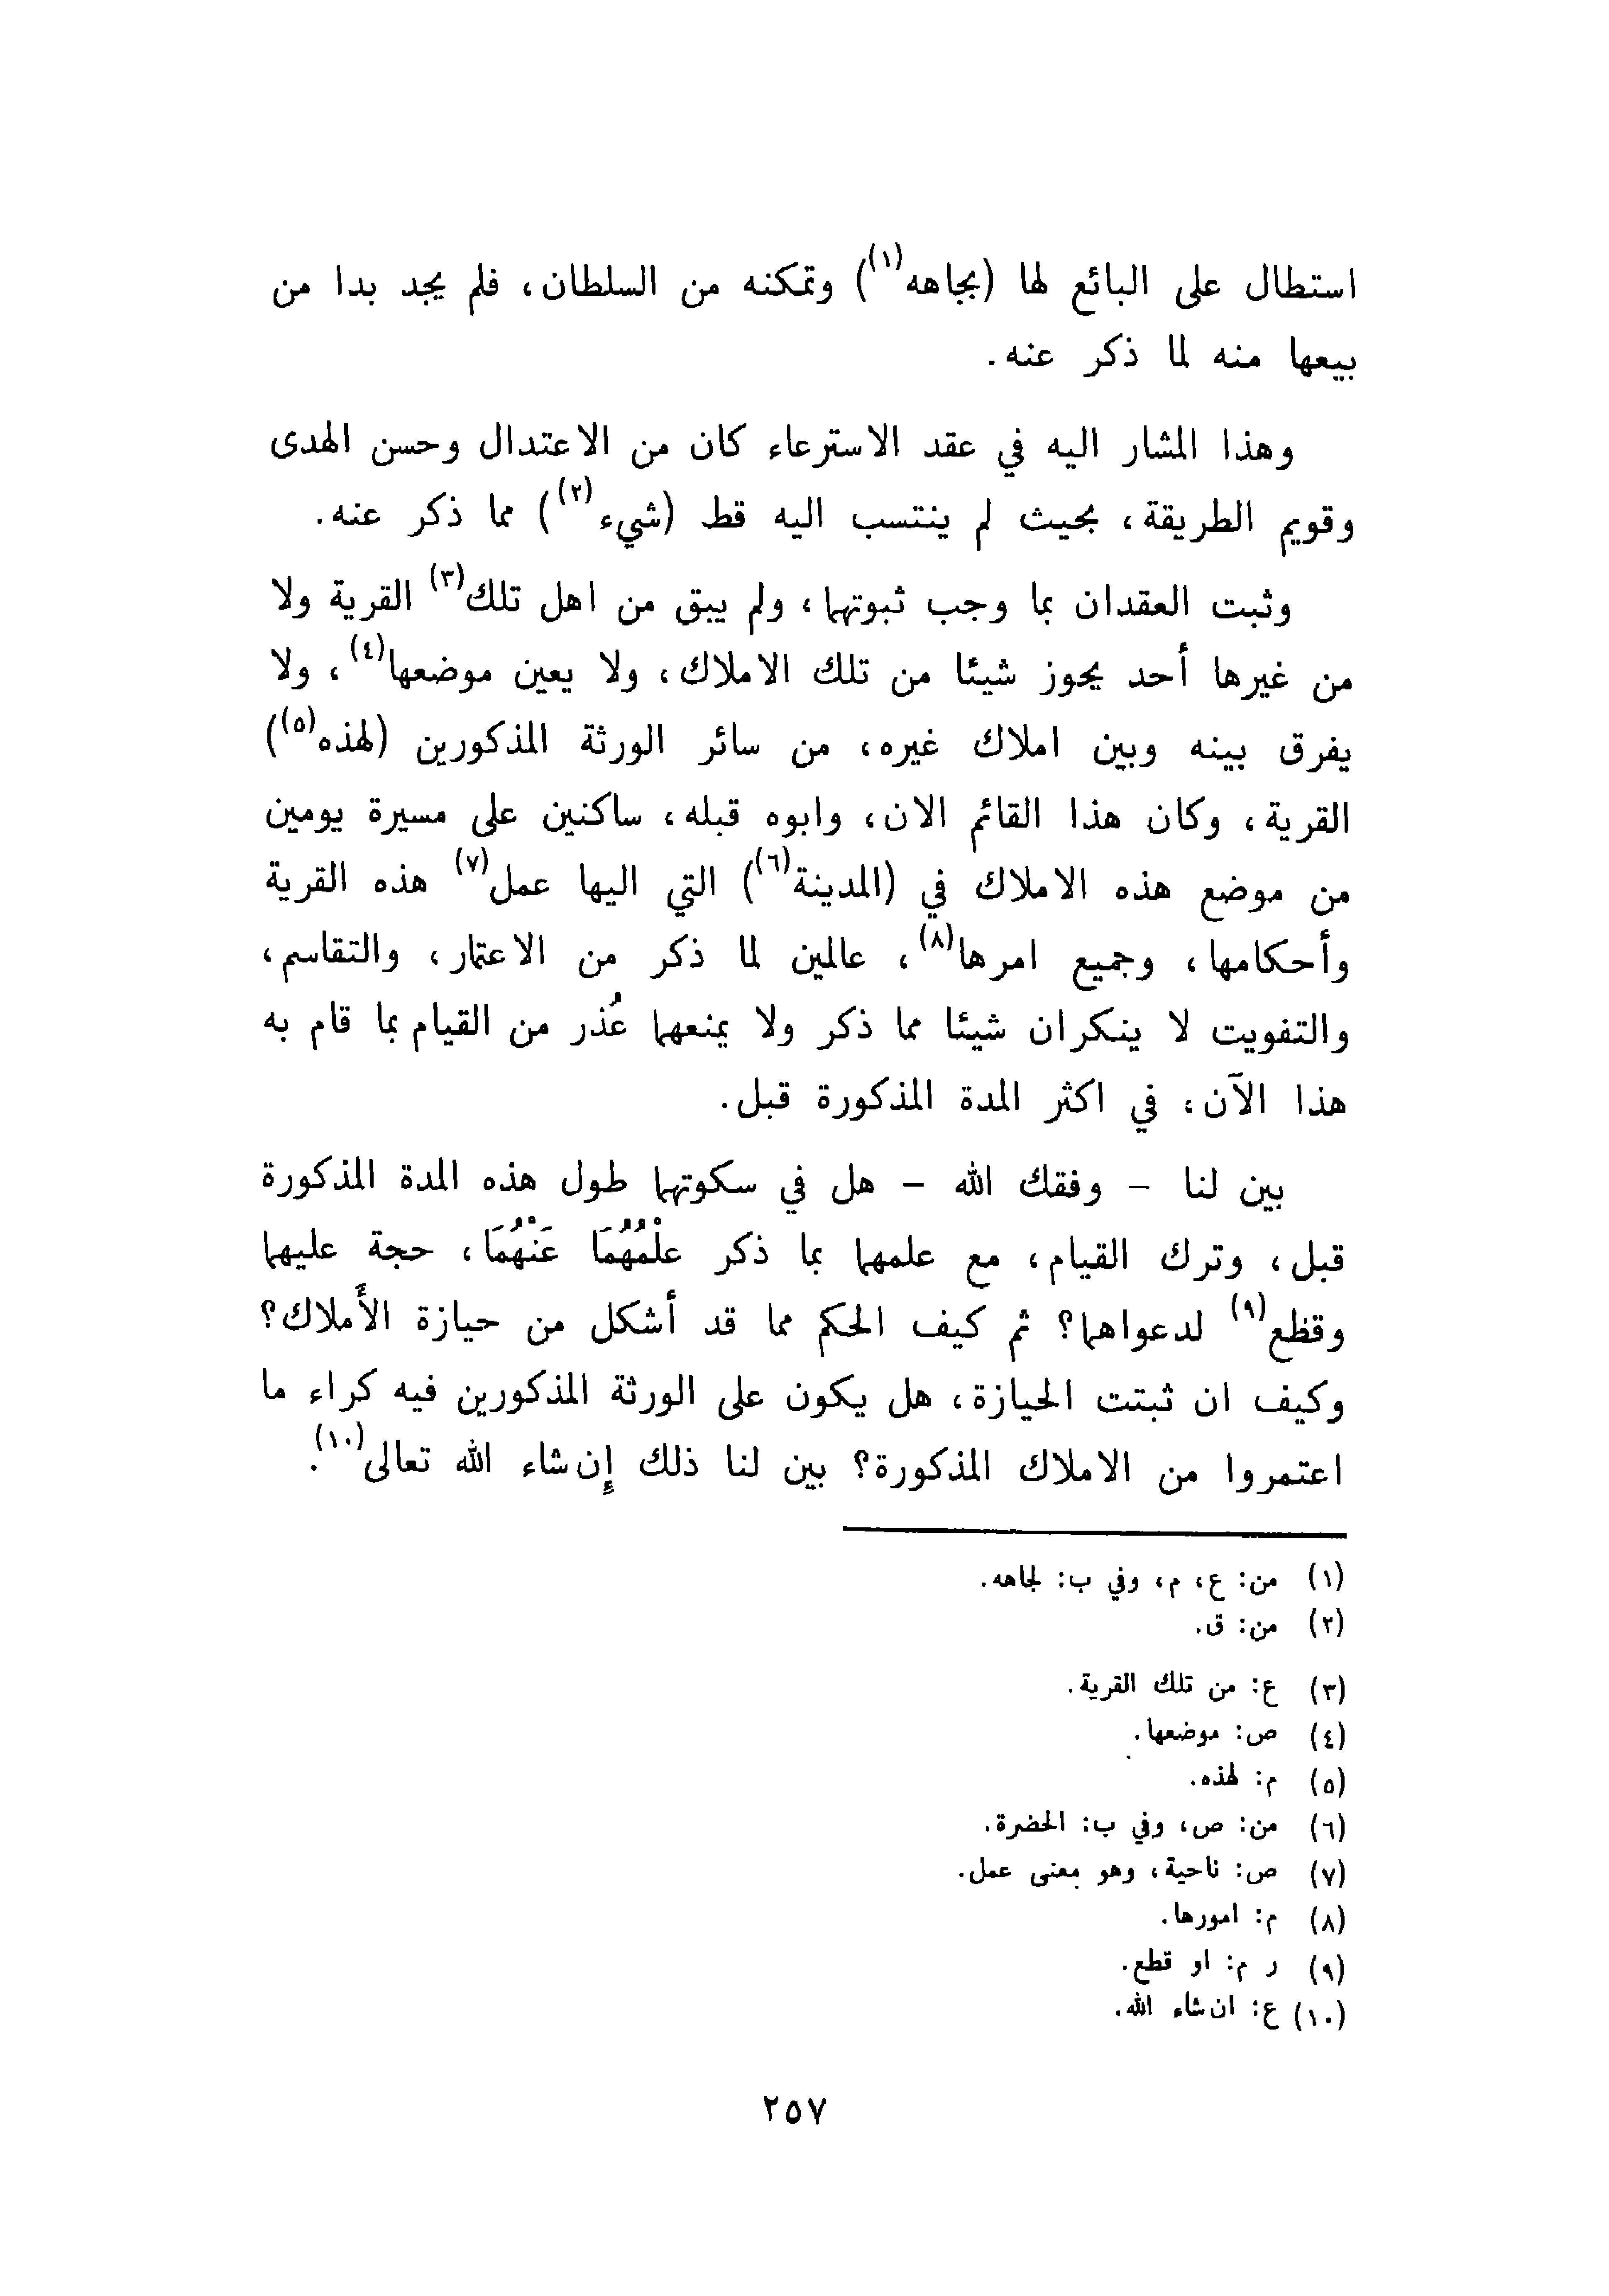 استطال على البائع لها (بجاهه(١)) وتمكنه من السلطان، فلم يجد بدا من
بيعها منه لما ذكر عنه.
وهذا المشار اليه في عقد الاسترعاء كان من الاعتدال وحسن الهدى
وقويم الطريقة، بحيث لم ينتسب اليه قط (شيء(٢)) مما ذكر عنه.
وثبت العقدان بما وجب ثبوتهما، ولم يبق من اهل تلك(٣) القرية ولا
من غيرها أحد يحوز شيئا من تلك الاملاك، ولا يعين موضعها(٤)، ولا
يفرق بينه وبين املاك غيره، من سائر الورثة المذكورين (لهذه(٥))
القرية، وكان هذا القائم الان، وابوه قبله، ساكنين على مسيرة يومين
من موضع هذه الاملاك في (المدينة(٦)) التي اليها عمل(٧) هذه القرية
وأحكامها، وجميع امرها(٨)، عالمين لما ذكر من الاعتمار، والتقاسم،
والتفويت لا ينكران شيئا مما ذكر ولا يمنعهما عُذر من القيام بما قام به
هذا الآن، في اكثر المدة المذكورة قبل.
بين لنا - وفقك الله - هل في سكوتهما طول هذه المدة المذكورة
قبل، وترك القيام، مع علمهما بما ذكر علْمُهُمَا عَنْهُمَا، حجة عليهما
وقظع(٩) لدعواهما؟ ثم كيف الحكم مما قد أشكل من حيازة الأملاك؟
وكيف ان ثبتت الحيازة، هل يكون على الورثة المذكورين فيه كراء ما
اعتمروا من الاملاك المذكورة؟ بين لنا ذلك إن شاء الله تعالى(١٠).
(١) من: ع، م، وفي ب: لجاهه.
(٢) من: ق.
(٣) ع: من تلك القرية.
(٤) ص: موضعها.
(٥) م: لهذه.
(٦) من: ص، وفي ب: الحضرة.
(٧) ص: ناحية، وهو بمعنى عمل.
(٨) م: امورها.
(٩) ر م: او قطع.
(١٠) ع: ان شاء الله.
٢٥٧